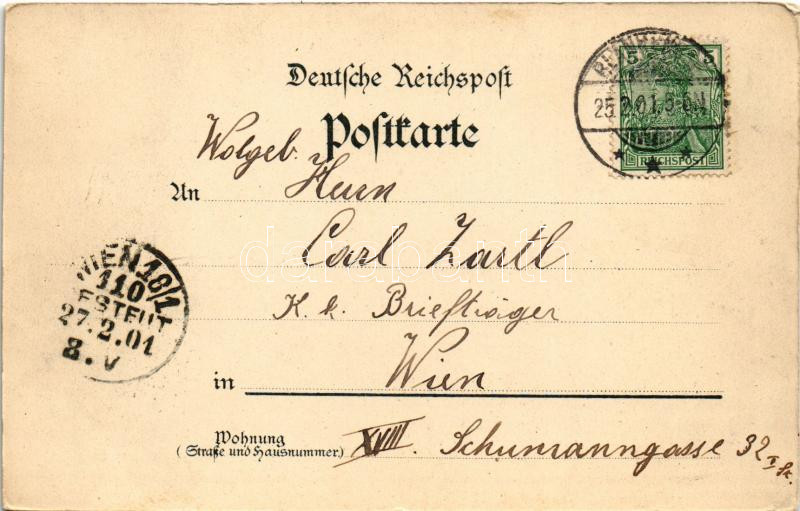 Deutsche Reichspost
Postkarte
5 5
REICHSPOST
25.2.01.
Wolgeb.
An Herrn
Carl Zartl
K. k. Briefträger
in Wien
Wohnung
(Straße und Hausnummer.)
XVIII. Schumanngasse 32
I St.
WIEN 18/1
110
BESTELLT
27.2.01
8.V
darabanth